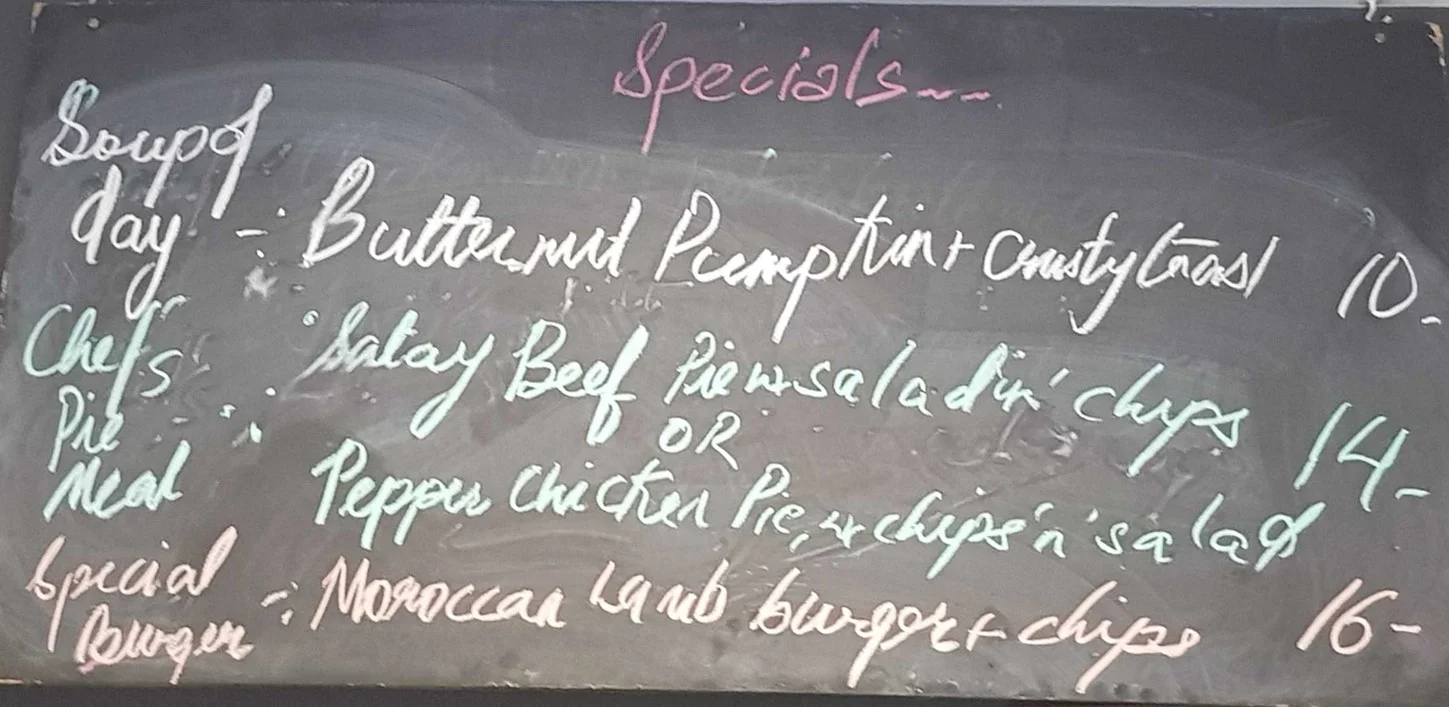 Specials...
Soup of
day -: Butternut Pumpkin + Crusty Toast 10-
Chefs : Satay Beef Pie w salad 'n' chips 14-
Pie : OR
Meal Pepper Chicken Pie, w chips 'n' salad
Special
Burger -: Moroccan Lamb burger + chips 16-